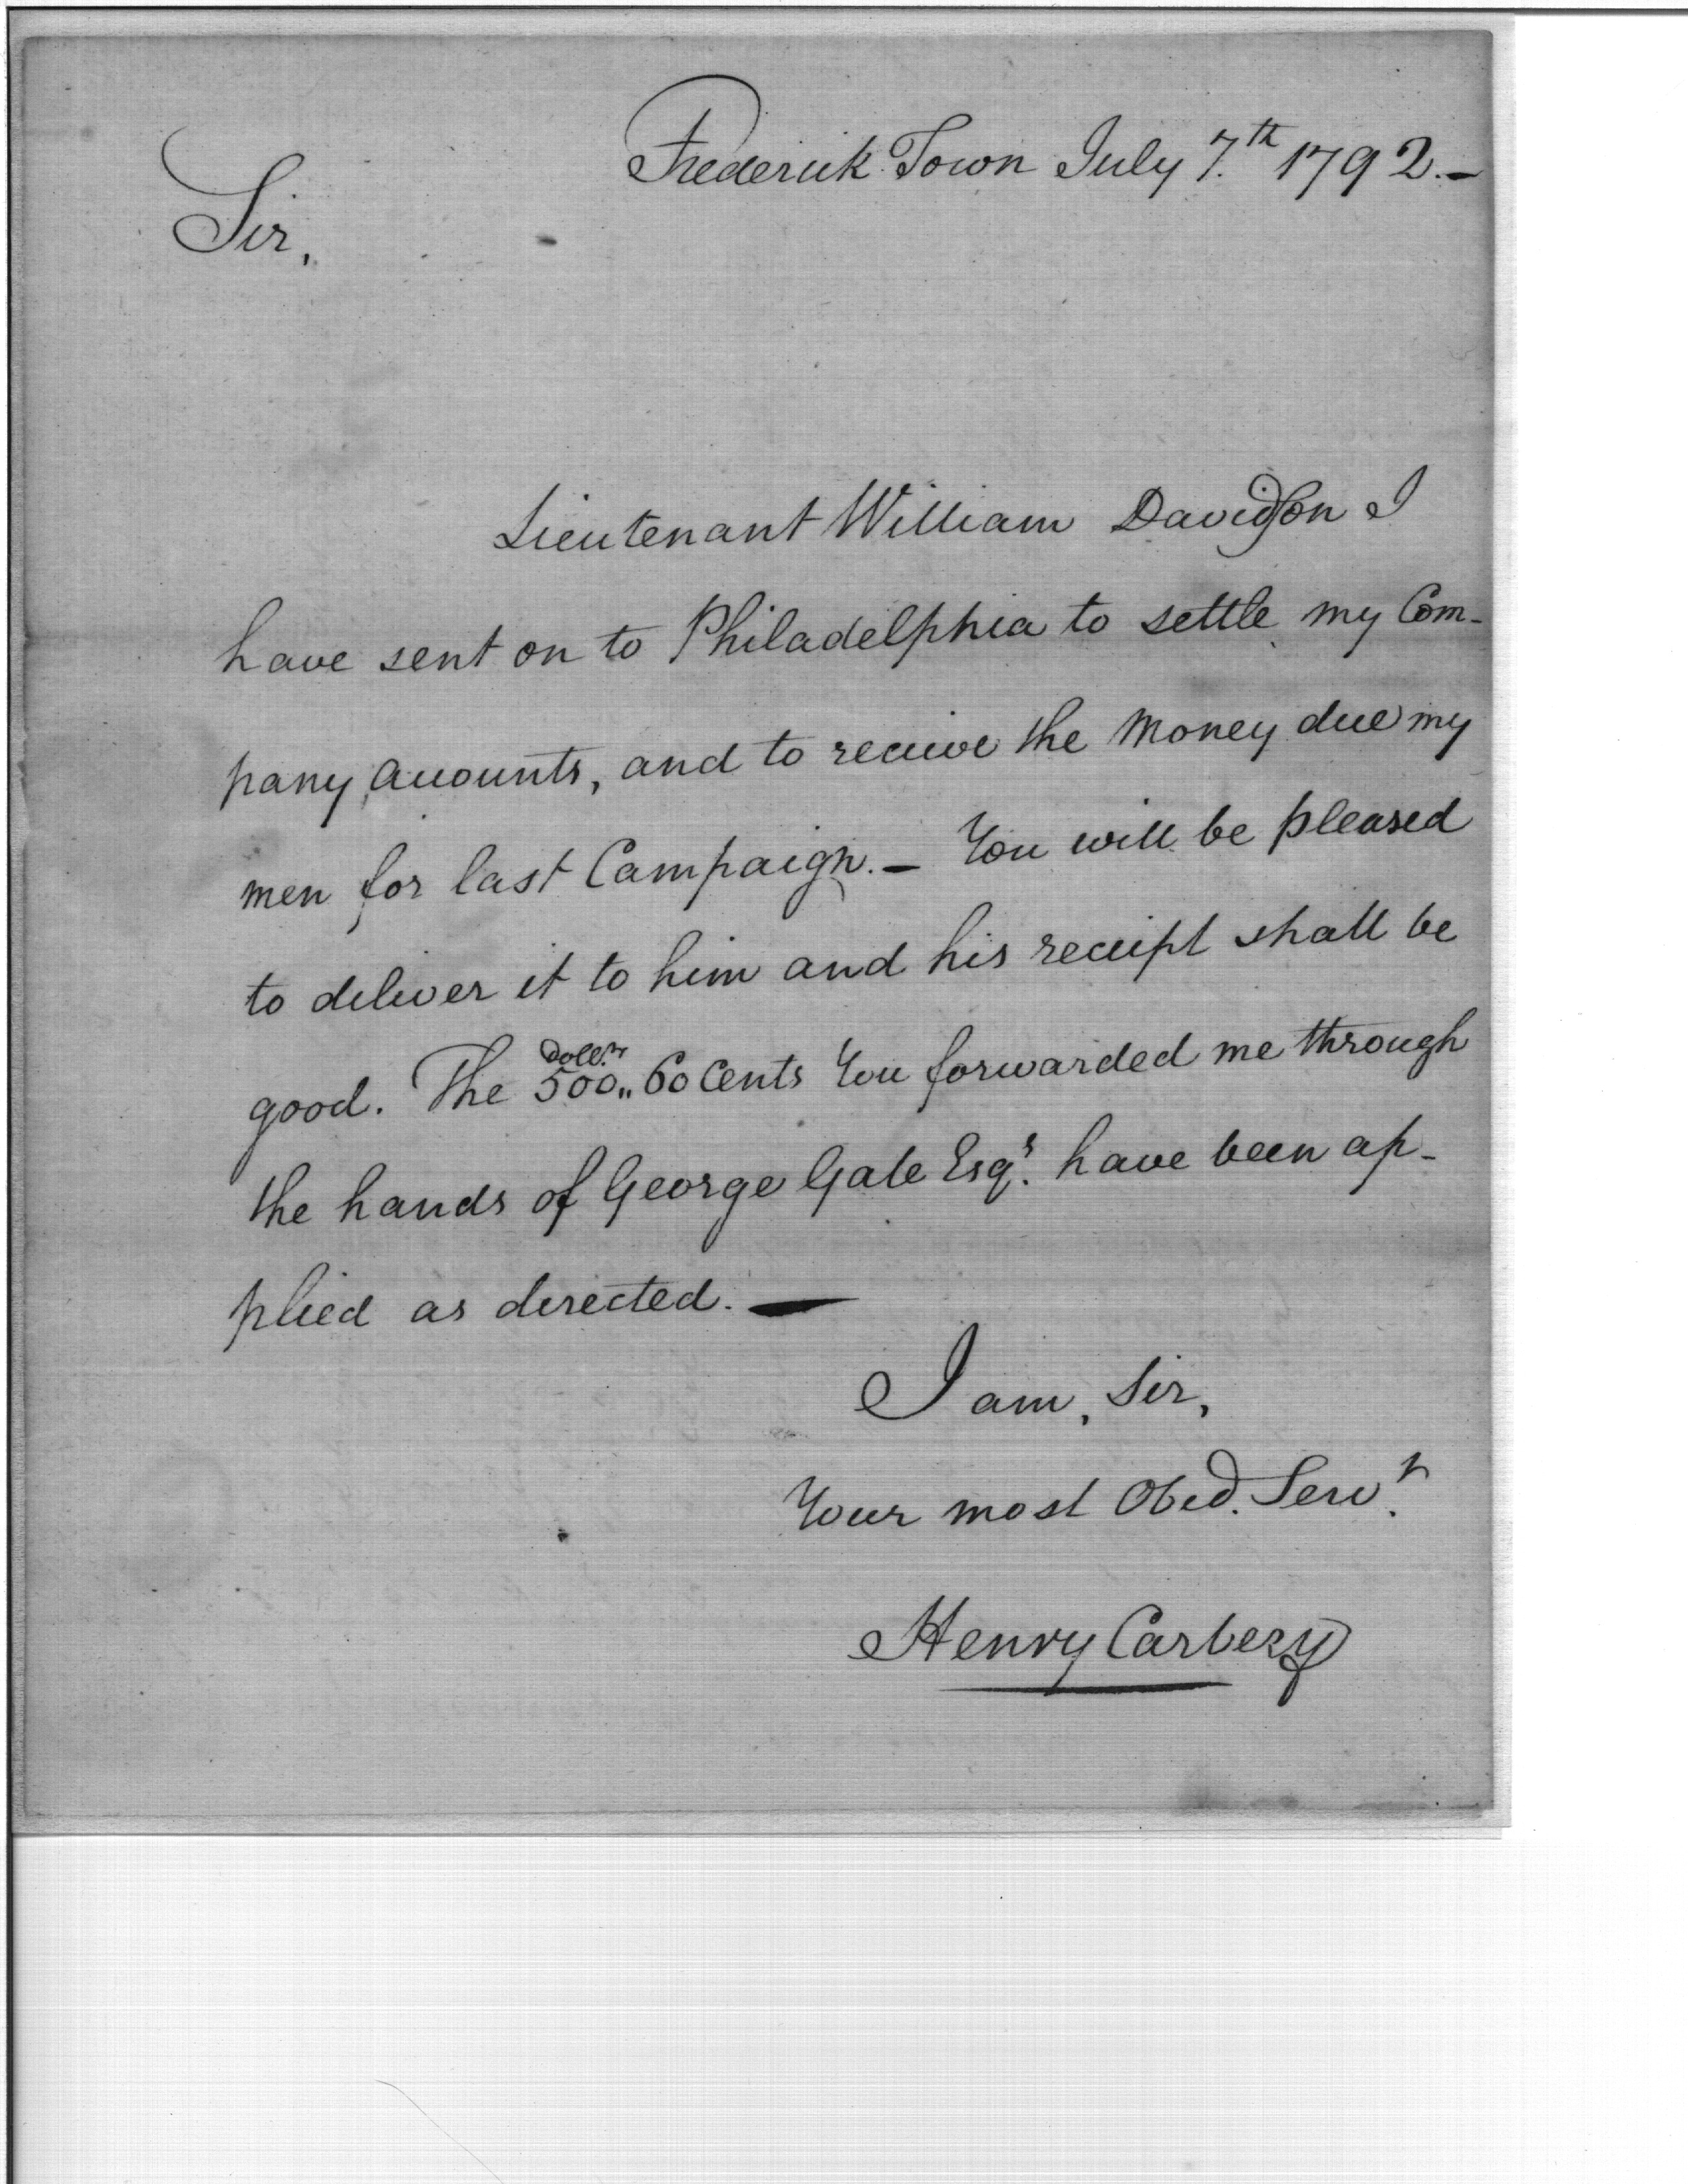 Frederick Town July 7.th 1792.—
Sir,
Lieutenant William Davidson I
have sent on to Philadelphia to settle my Com-
pany Accounts, and to receive the Money due my
men for last Campaign.— You will be pleased
to deliver it to him and his receipt shall be
good. The 500 Doll.rs„ 60 Cents You forwarded me through
the hands of George Gale Esq.r have been ap-
plied as directed.—
I am, Sir,
Your most Obed. Serv.t
Henry Carbery